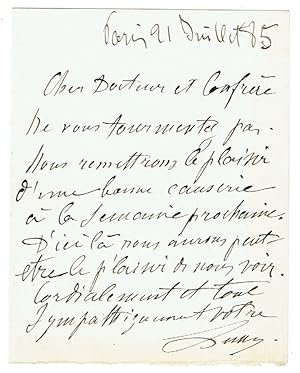 Paris 21 Juillet 85
Cher Docteur et Confrère
Ne vous tourmentez pas.
Nous remettrons le plaisir
d'une bonne causerie
à la semaine prochaine.
D'ici là nous aurons peut-
etre le plaisir de nous voir.
Cordialement et tout
Sympathiquement votre